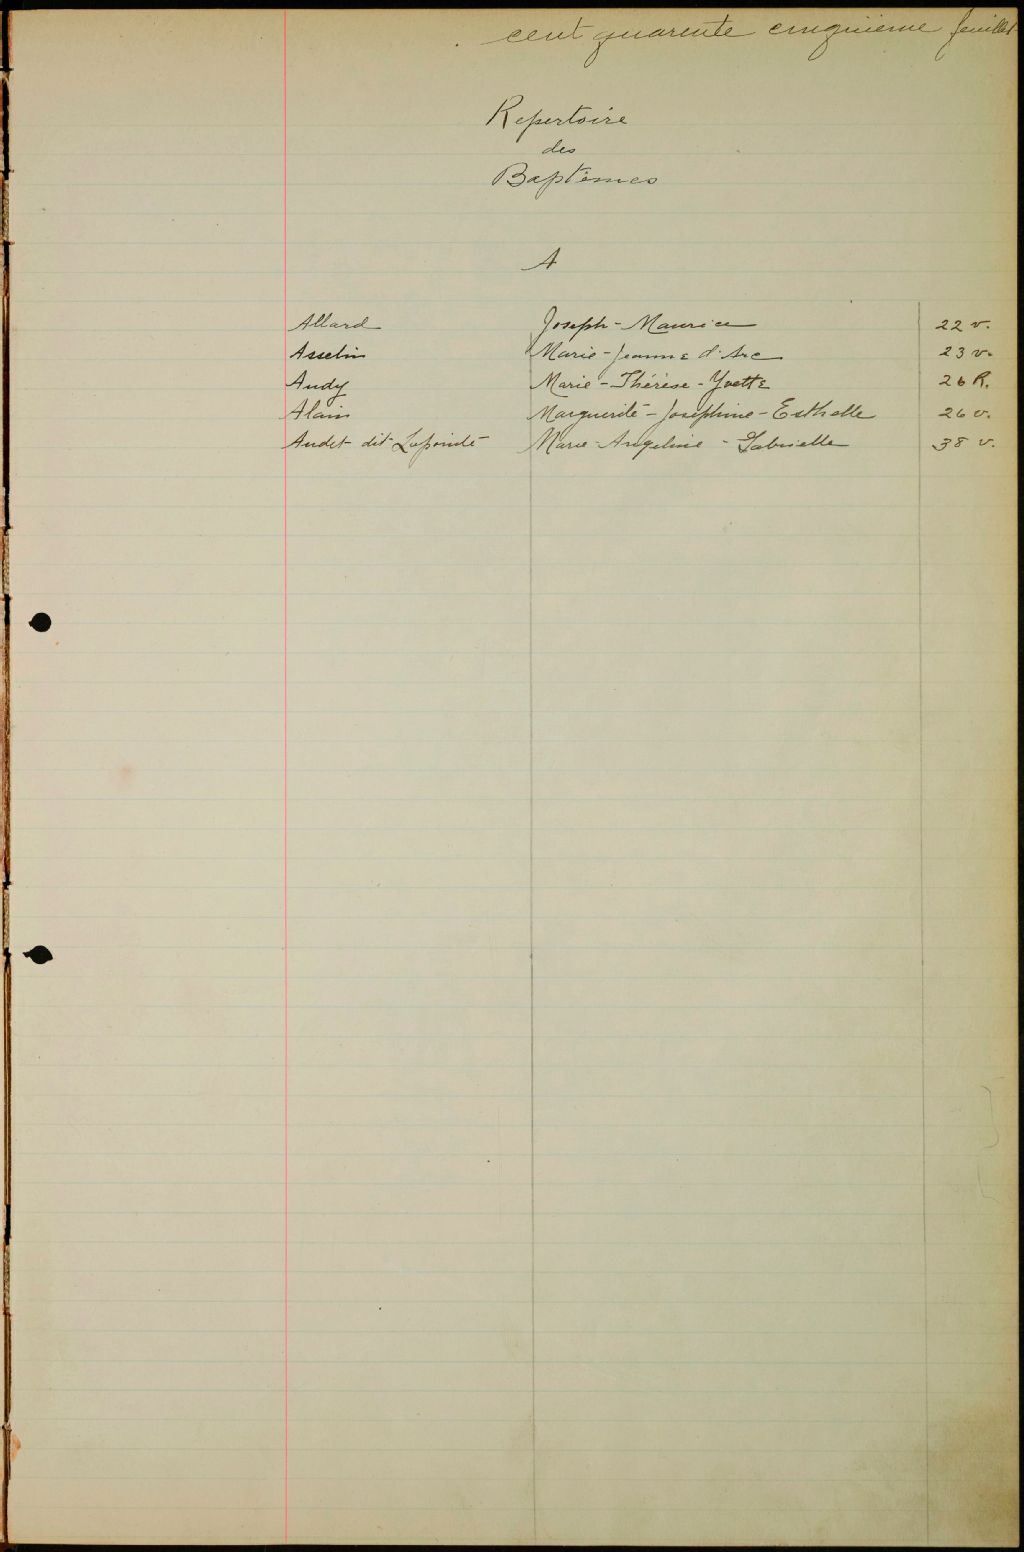 cent quarente cinquième feuillet
Repertoire
des
Baptêmes
A
Allard Joseph - Maurice 22 v.
Asselin Marie - Jeanne d'Arc 23 v.
Audy Marie - Thérèse - Yvette 26 R.
Alain Marguerite - Joséphine - Esthelle 26 v.
Audet dit Lapointe Marie - Angeline - Gabrielle 38 v.